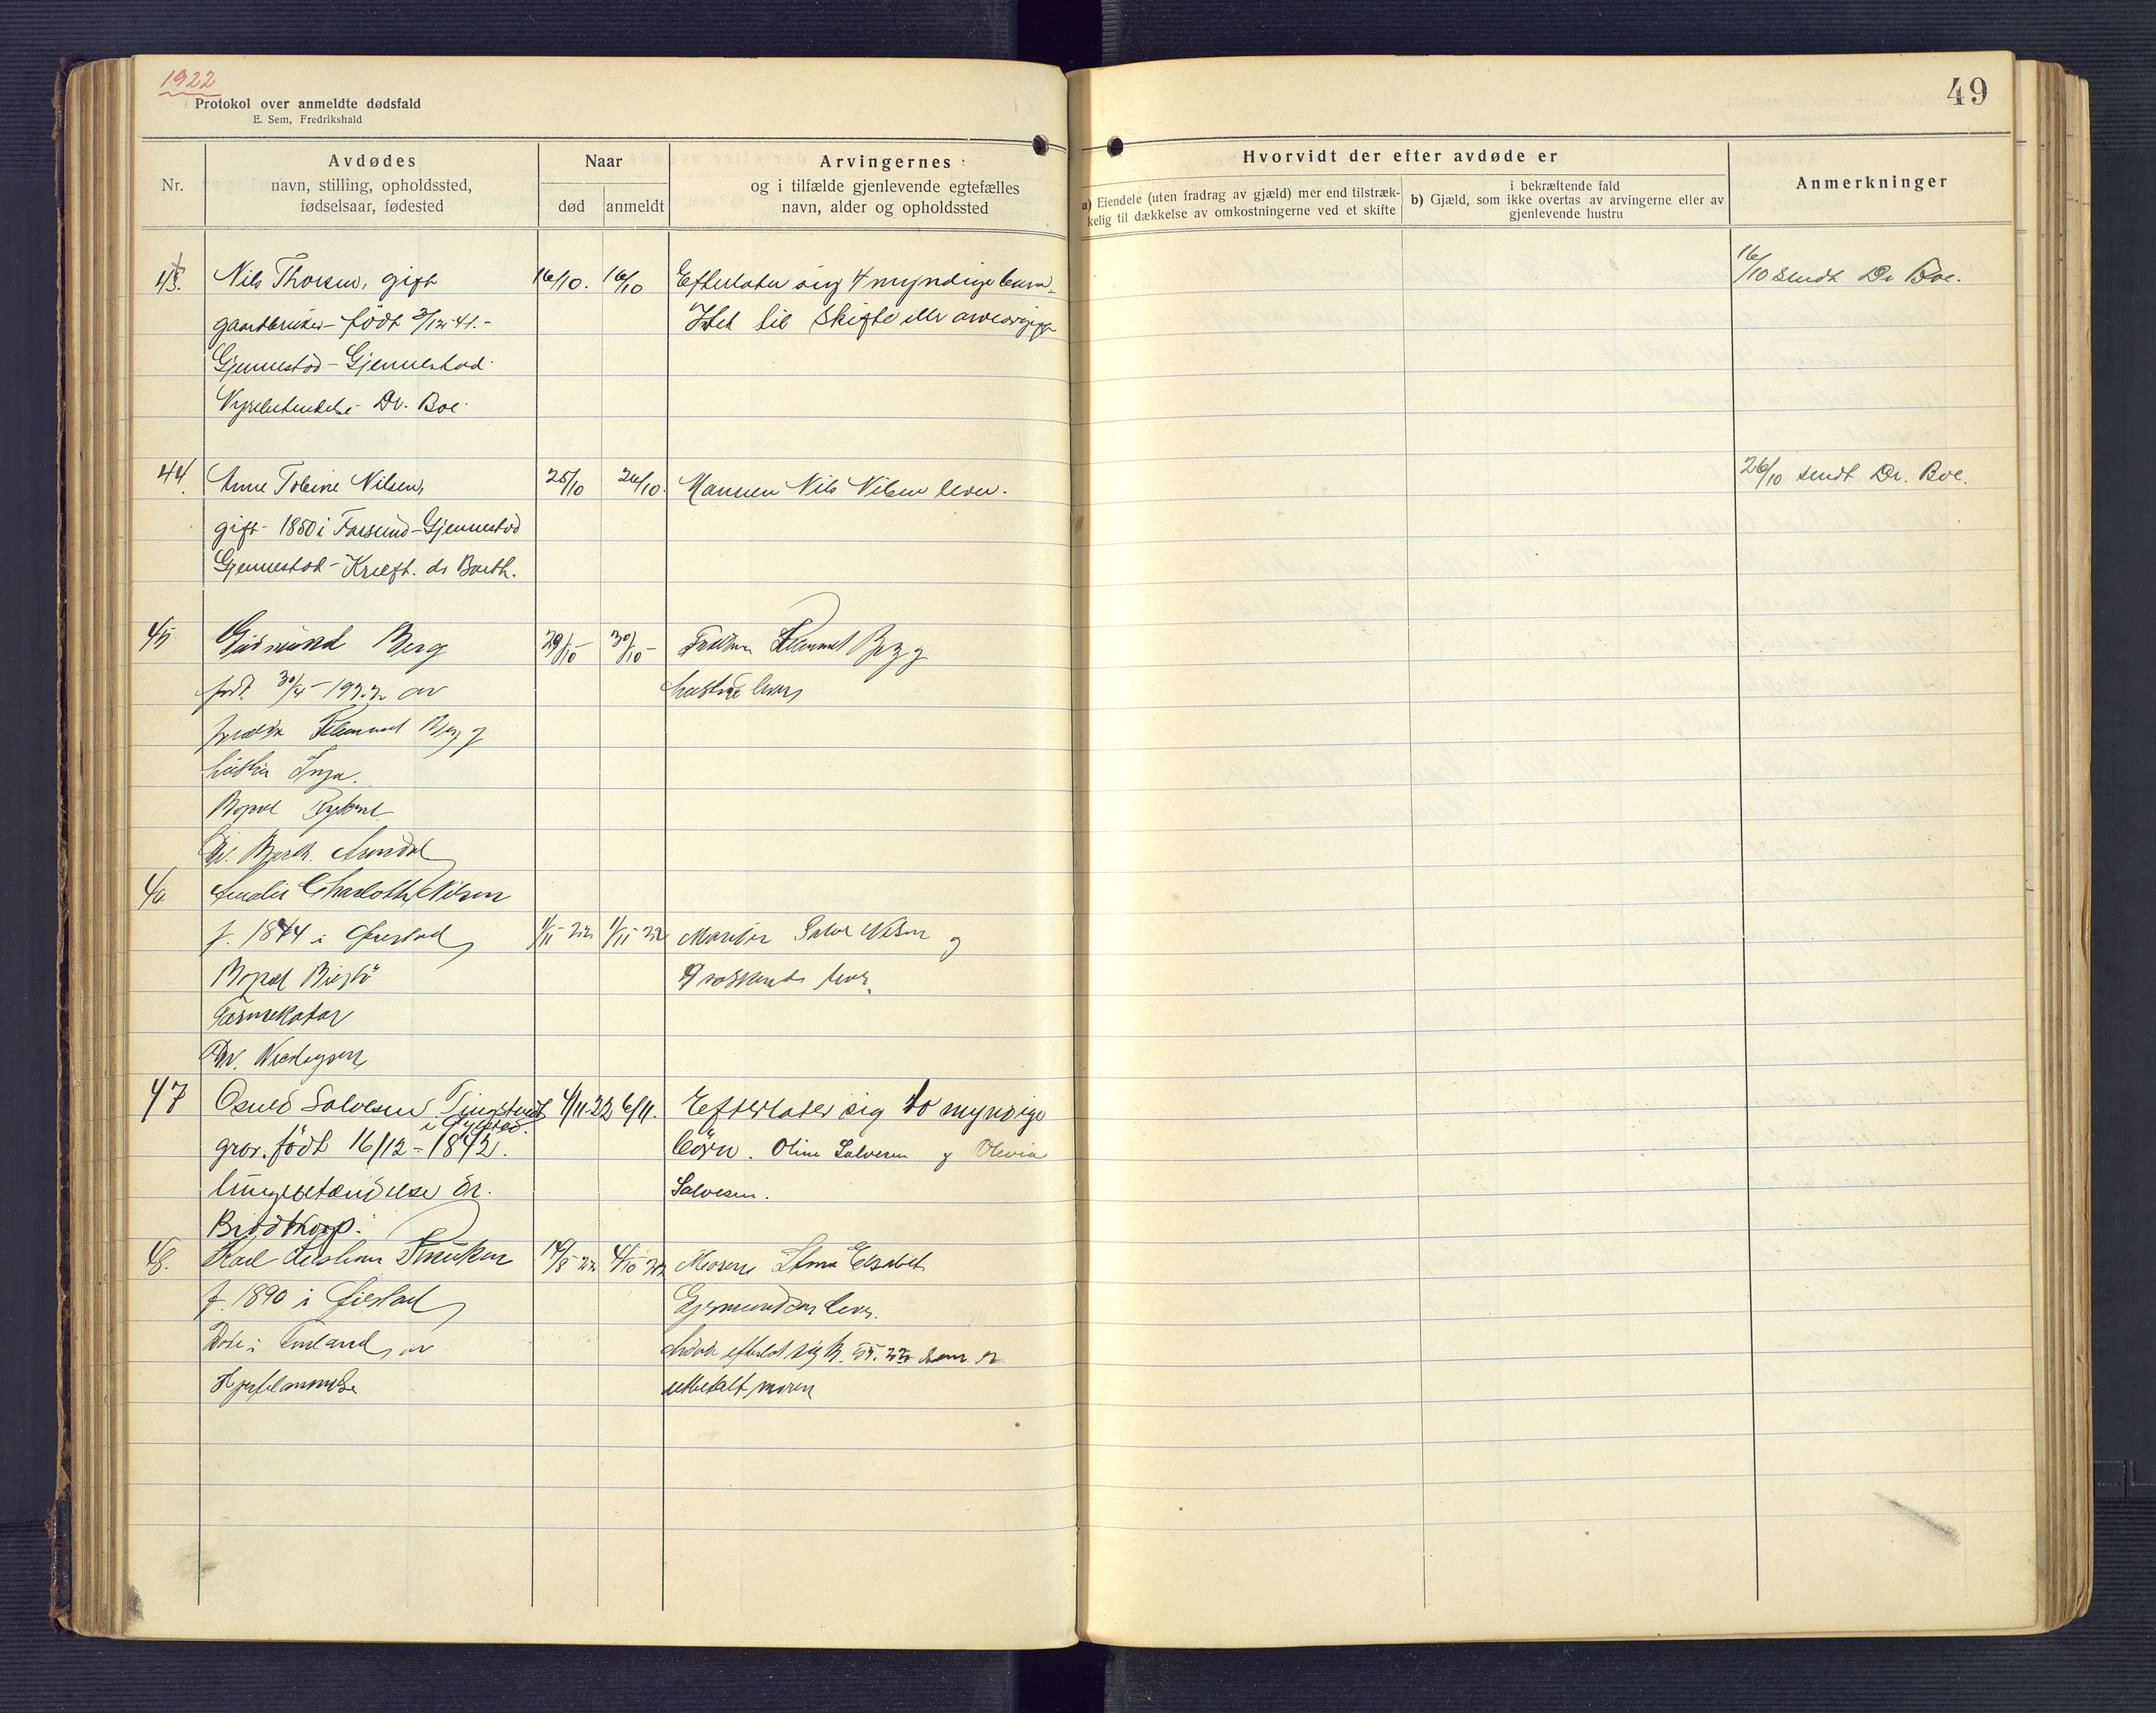 1922
Protokol over anmeldte dødsfald
E. Sem, Fredrikshald
49
Nr.
Avdødes
navn, stilling, opholdssted,
fødselsaar, fødested
Naar
død
anmeldt
Arvingernes
og i tilfælde gjenlevende egtefælles
navn, alder og opholdssted
Hvorvidt der efter avdøde er
a) Eiendele (uten fradrag av gjæld) mer end tilstræk-
kelig til dækkelse av omkostningerne ved et skifte
i bekræftende fald
b) Gjæld, som ikke overtas av arvingerne eller av
gjenlevende hustru
Anmerkninger
43. Nils Thorsen, gift 16/10. 16/10 Efterlater sig 4 myndige barn. 16/10 sendt Dr Boe.
gaardbruker - født 3/12 41. - Intet til skifte eller arveavgift
Gjennestad - Gjennestad.
Dr. Boe.
44. Anne Tobine Nilsen, 25/10 26/10. Mannen Nils Nilsen lever. 26/10 sendt Dr. Boe.
gift - 1850 i Farsund - Gjennestad
Gjennestad - Kræft. dr Barth.
45 Gudmund Berg 29/10 - 30/10 - Berg og
født 30/4 - 1922 av hustru lever
Berg og
hustru Inga.
Bopæl
Dr. Barth. Arendal
46 Amalie Charlotte Nilsen
f. 1844 i Øiestad 1/11 - 22 1/11 - 22 Nilsen og
Bopæl lever.
Tarmkatar
Dr.
47 Osuld Salvesen Tingstveit 4/11-22 6/11. Efterlater sig to myndige
i Øyestad.
grdr. født 16/12 - 1842. börn. Oline Salvesen og Olevia
lungebetændelse dr. Salvesen.
Brodtkorp.
48. Karl Kristian 14/8 - 22 4/10 22 Moren Elisabet
f. 1890 i Øiestad lever.
Døde i av efterlot sig kr. som er
Hjertelammelse utbetalt moren